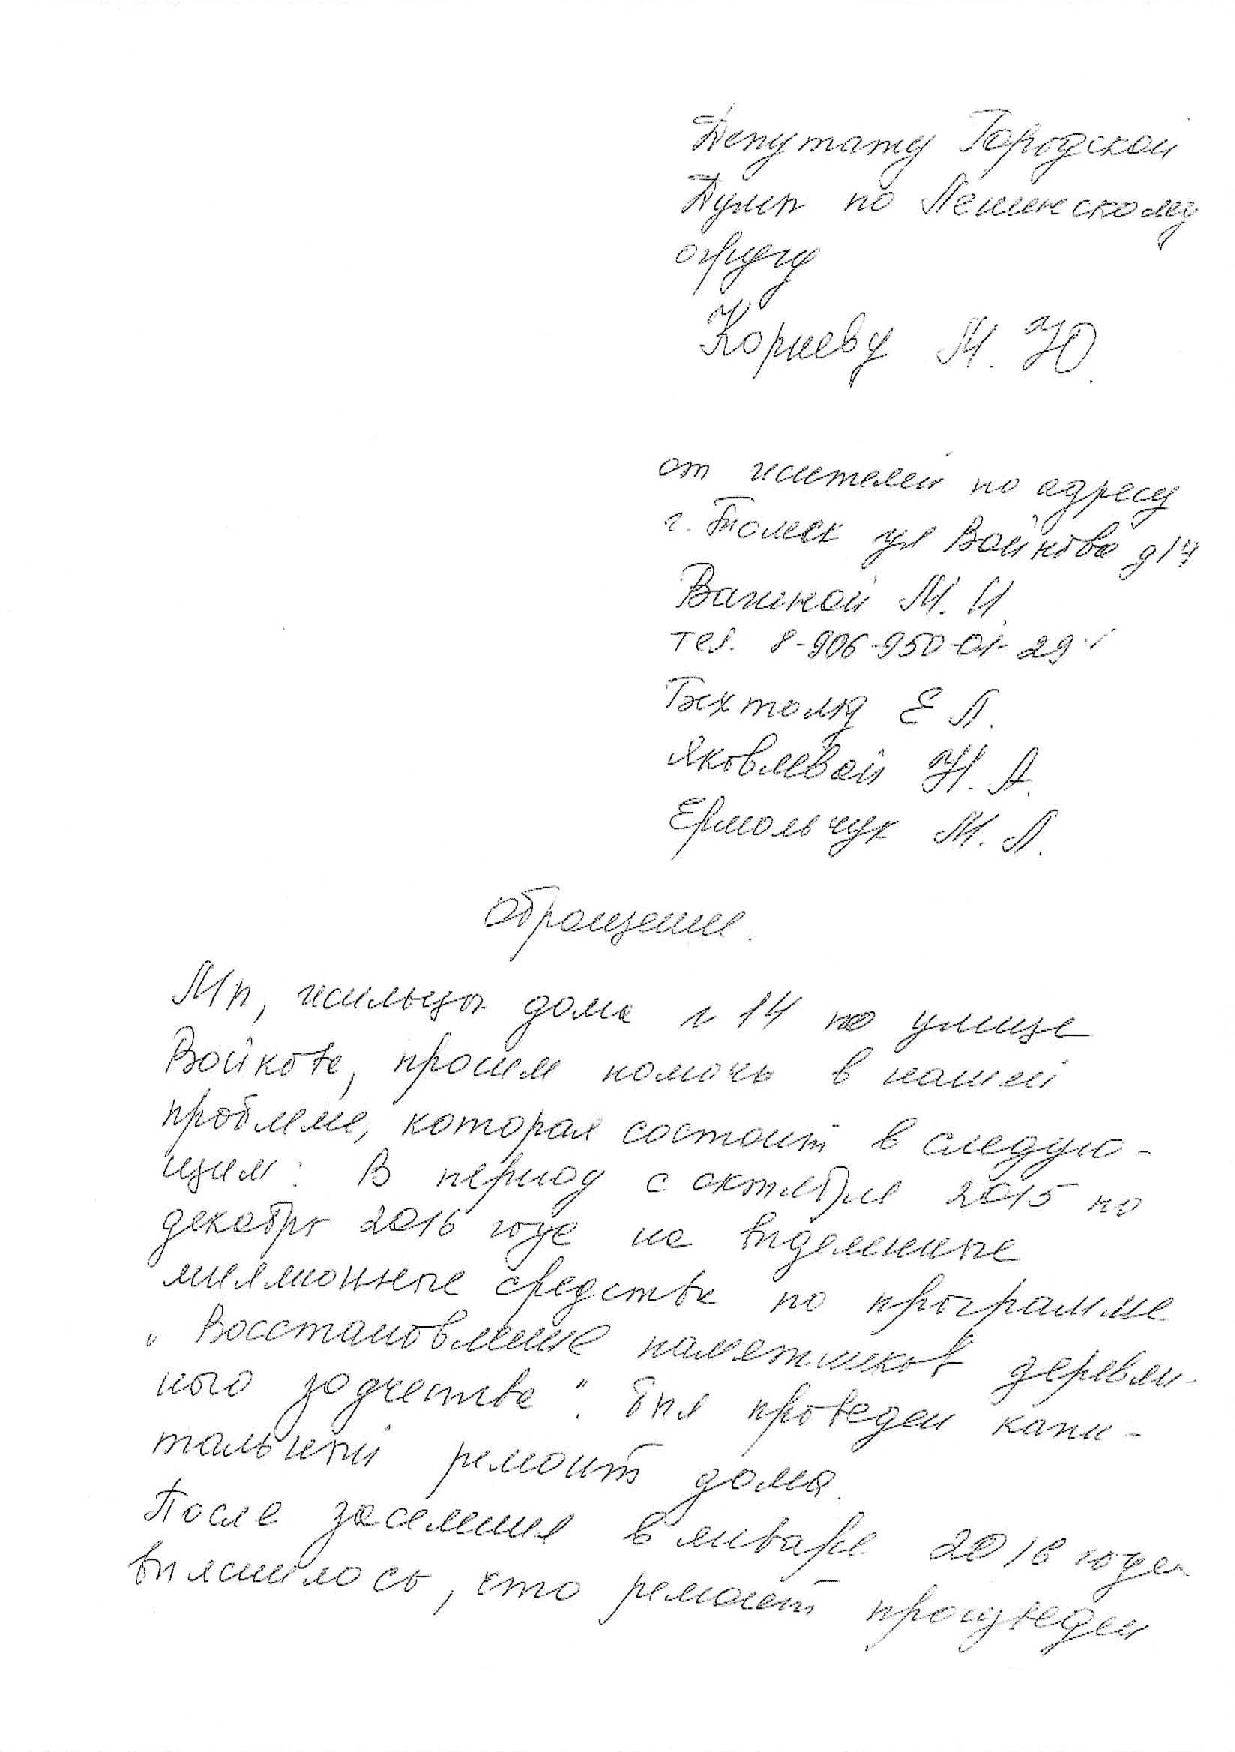 Депутату Городской
Думы по Ленинскому
округу
Корневу М.Ю.
от жителей по адресу
г. Томск ул Войкова д14
М.И.
тел. 8-906-950-01-29
Е Л.
Яковлевой Н.А.
Ермольчук М.Л.
Обращение.
Мы, жильцы дома № 14 по улице
Войкова, просим помочь в нашей
проблеме, которая состоит в следую-
щем: В период с октября 2015 по
декабрь 2016 года на выделенные
миллионные средства по программе
"Восстановление памятников деревян-
ного зодчества". был проведен капи-
тальный ремонт дома.
После заселения в январе года
выяснилось, что ремонт произведен